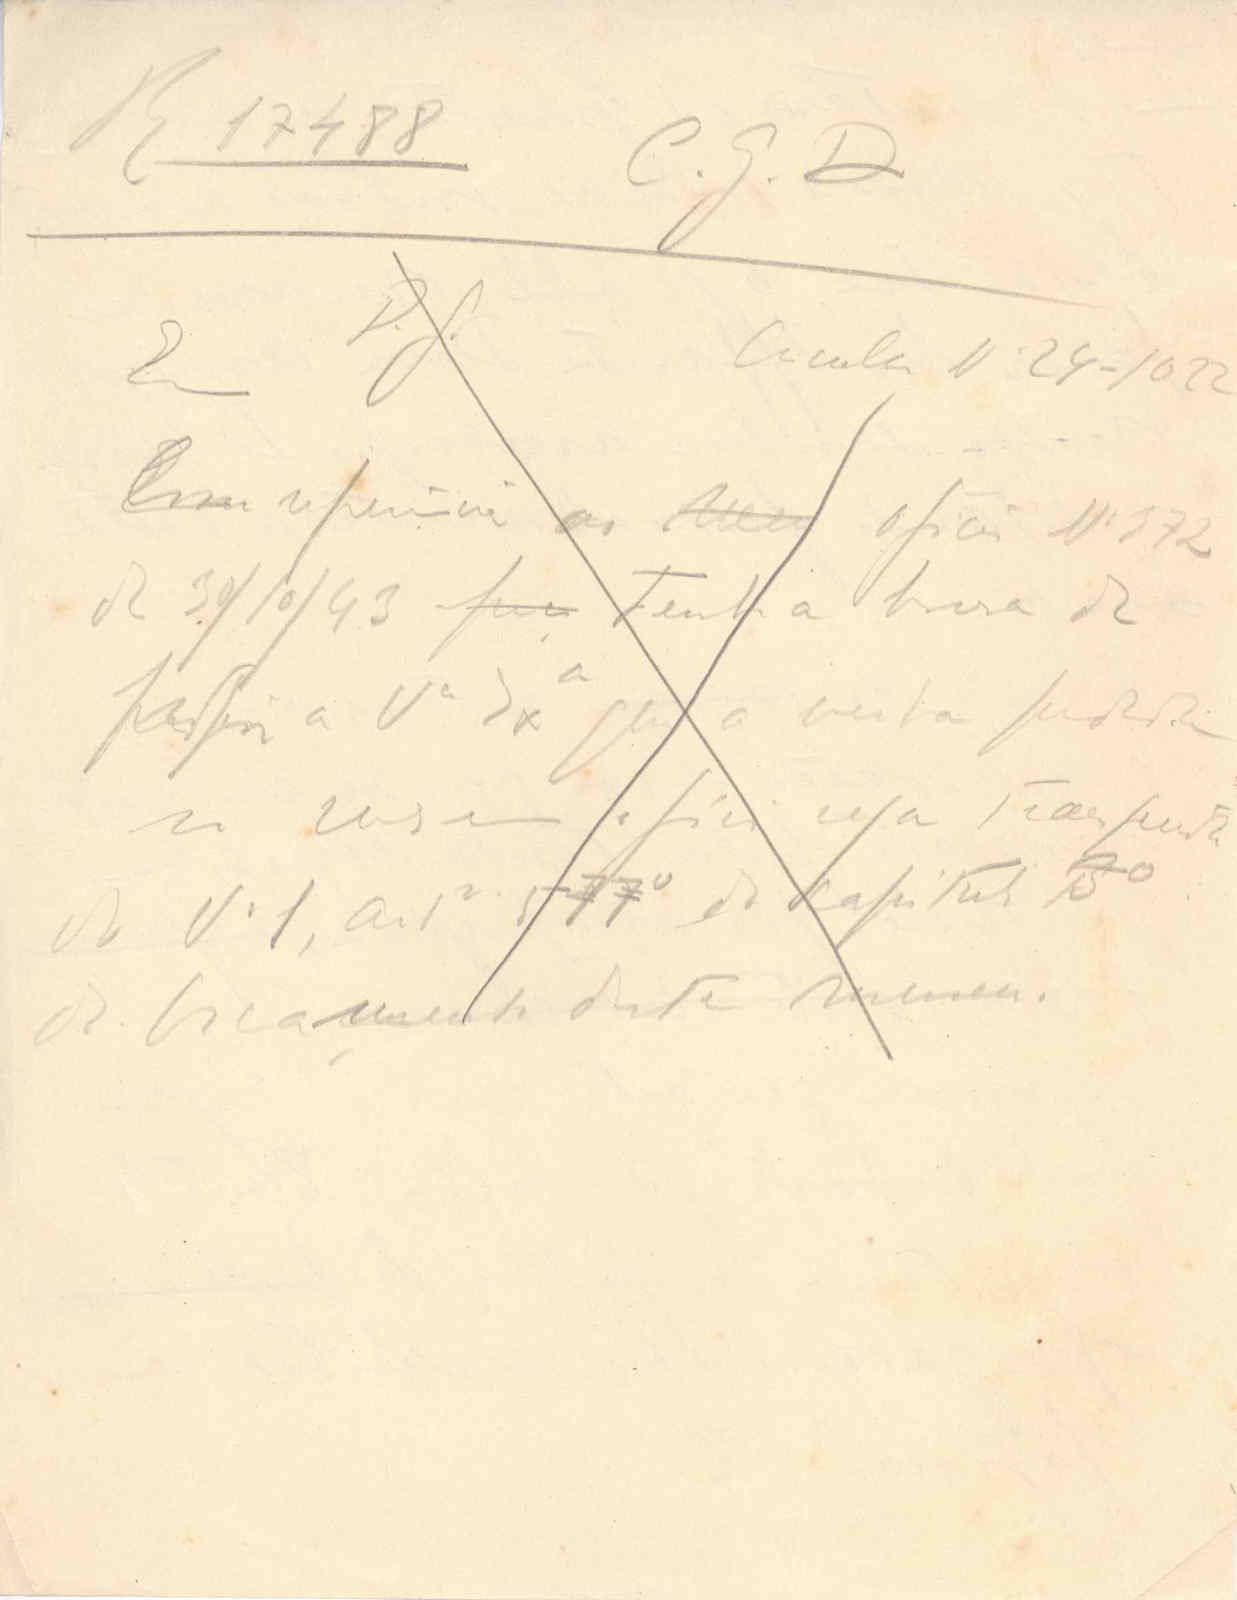 17488 C. G. D
D. G.
Circular Nº 24-1022
Com referência ao meu oficio Nº 372
de 30/10/43 Tenho a honra de
pedir a Vª Exª que a verba pedida
no mesmo oficio seja transferida
do Nº 1, artº 577º do Capitulo º
do Orçamento deste